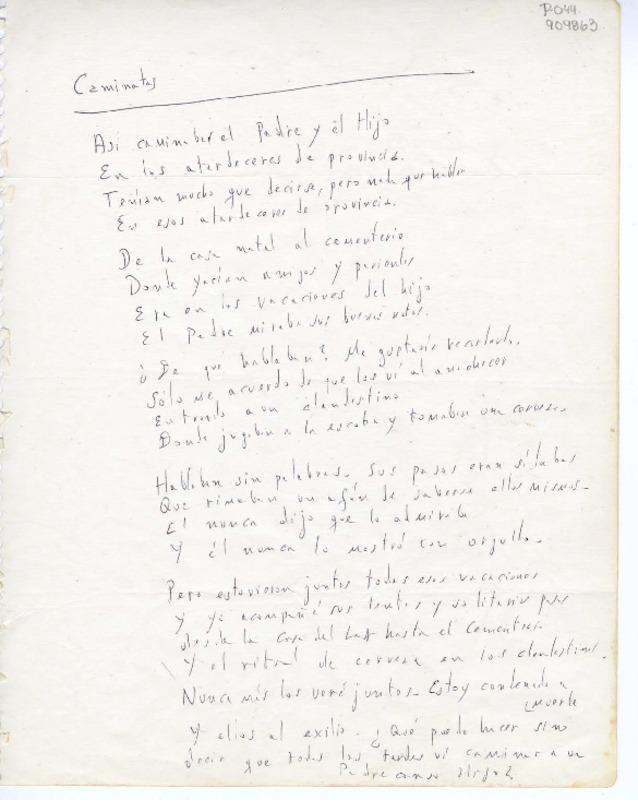 P-044
909863
Caminatas
Así caminaban el Padre y el Hijo
En los atardeceres de provincia.
Tenían mucho que decirse, pero nada que hablar
En esos atardeceres de provincia.
De la casa natal al cementerio
Donde yacían amigos y parientes
Era en las vacaciones del hijo
El Padre miraba sus buenas notas.
¿De qué hablaban? Me gustaría recordarlo.
Sólo me acuerdo de que los vi al anochecer
Entrando a un clandestino
Donde jugaban a la escoba y tomaban una cerveza.
Hablaban sin palabras. Sus pasos eran sílabas
Que rimaban un afán de saberse ellos mismos.
El nunca dijo que lo admiraba
Y él nunca lo mostró con orgullo.
Pero estuvieron juntos todas esas vacaciones
Y yo acompañé sus lentos y solitarios pasos
desde la Casa del hasta el Cementerio
Y el ritual de cerveza en los clandestinos.
Nunca más los veré juntos. Estoy condenado a
muerte
Y ellos al exilio. ¿Qué puedo hacer sino
decir que todas las tardes vi caminar a un
Padre con su